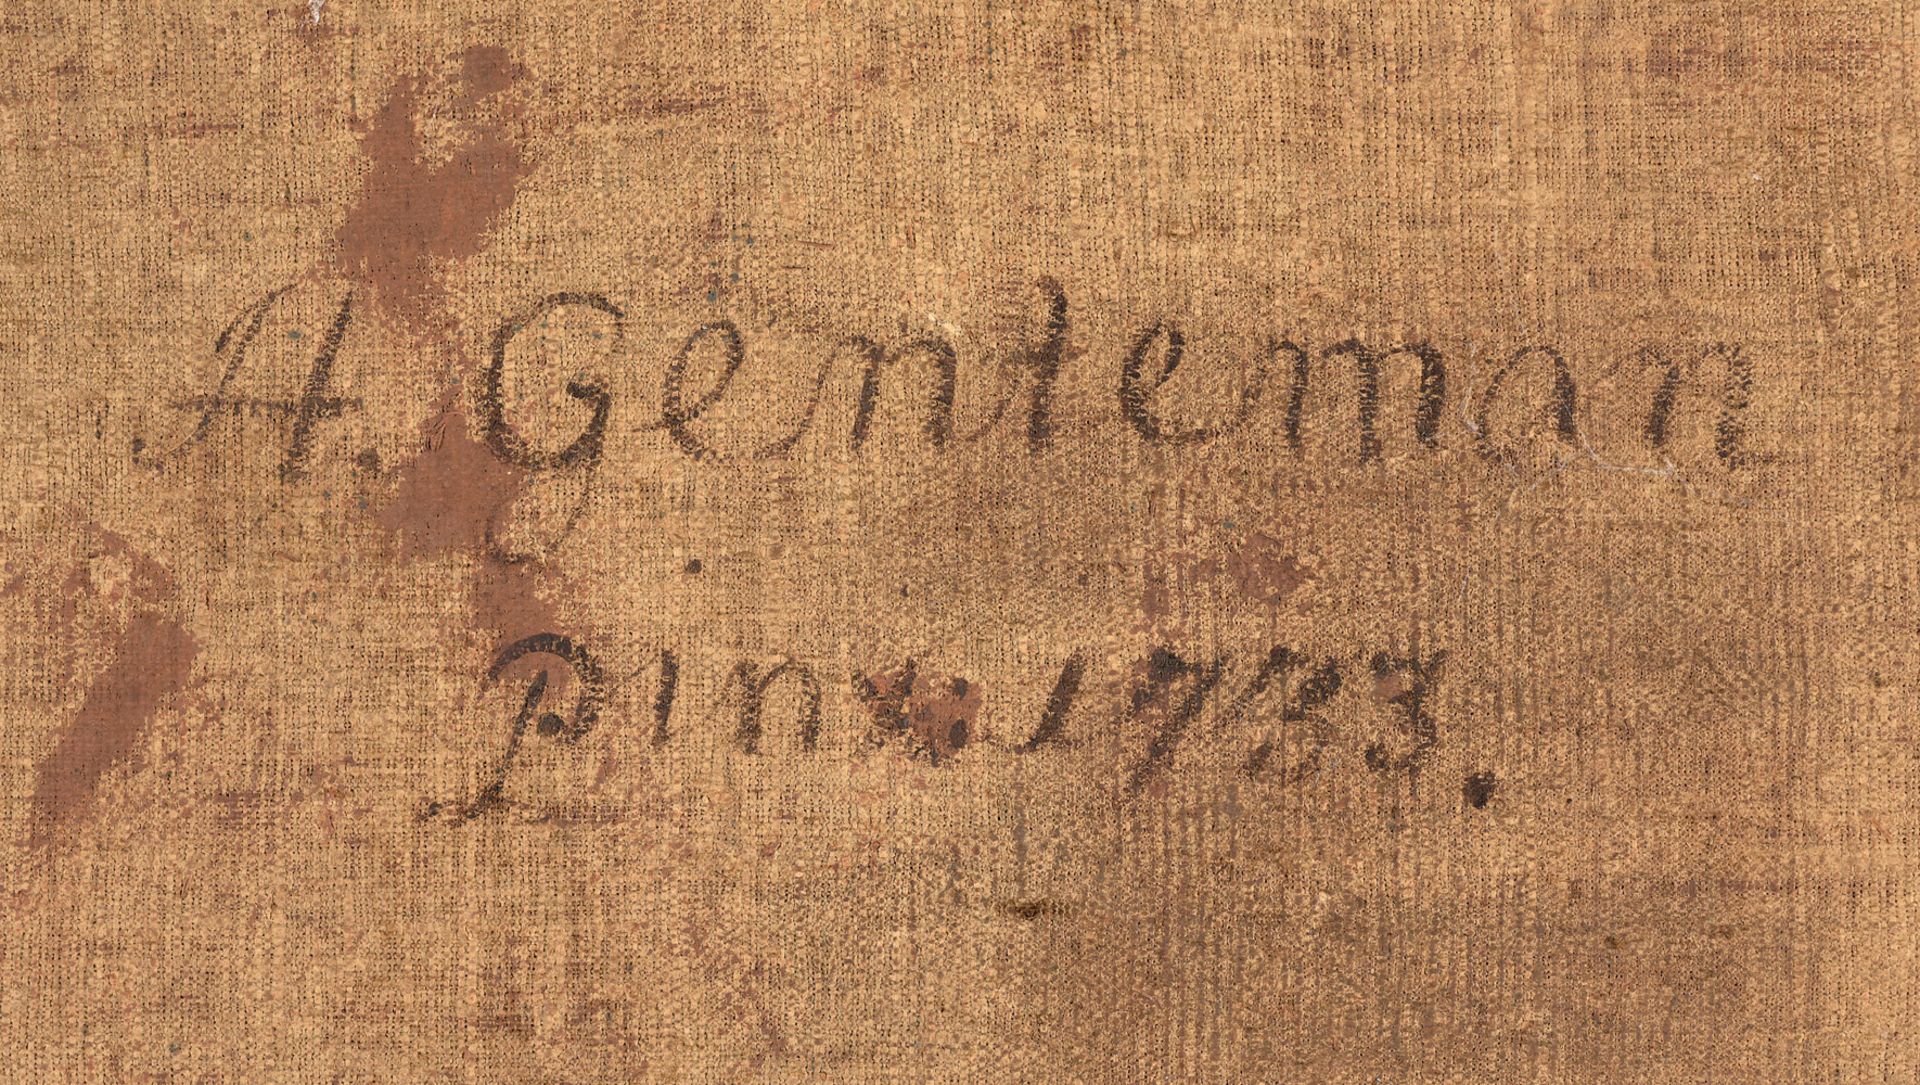 A. Genteman
Pinx 1723.